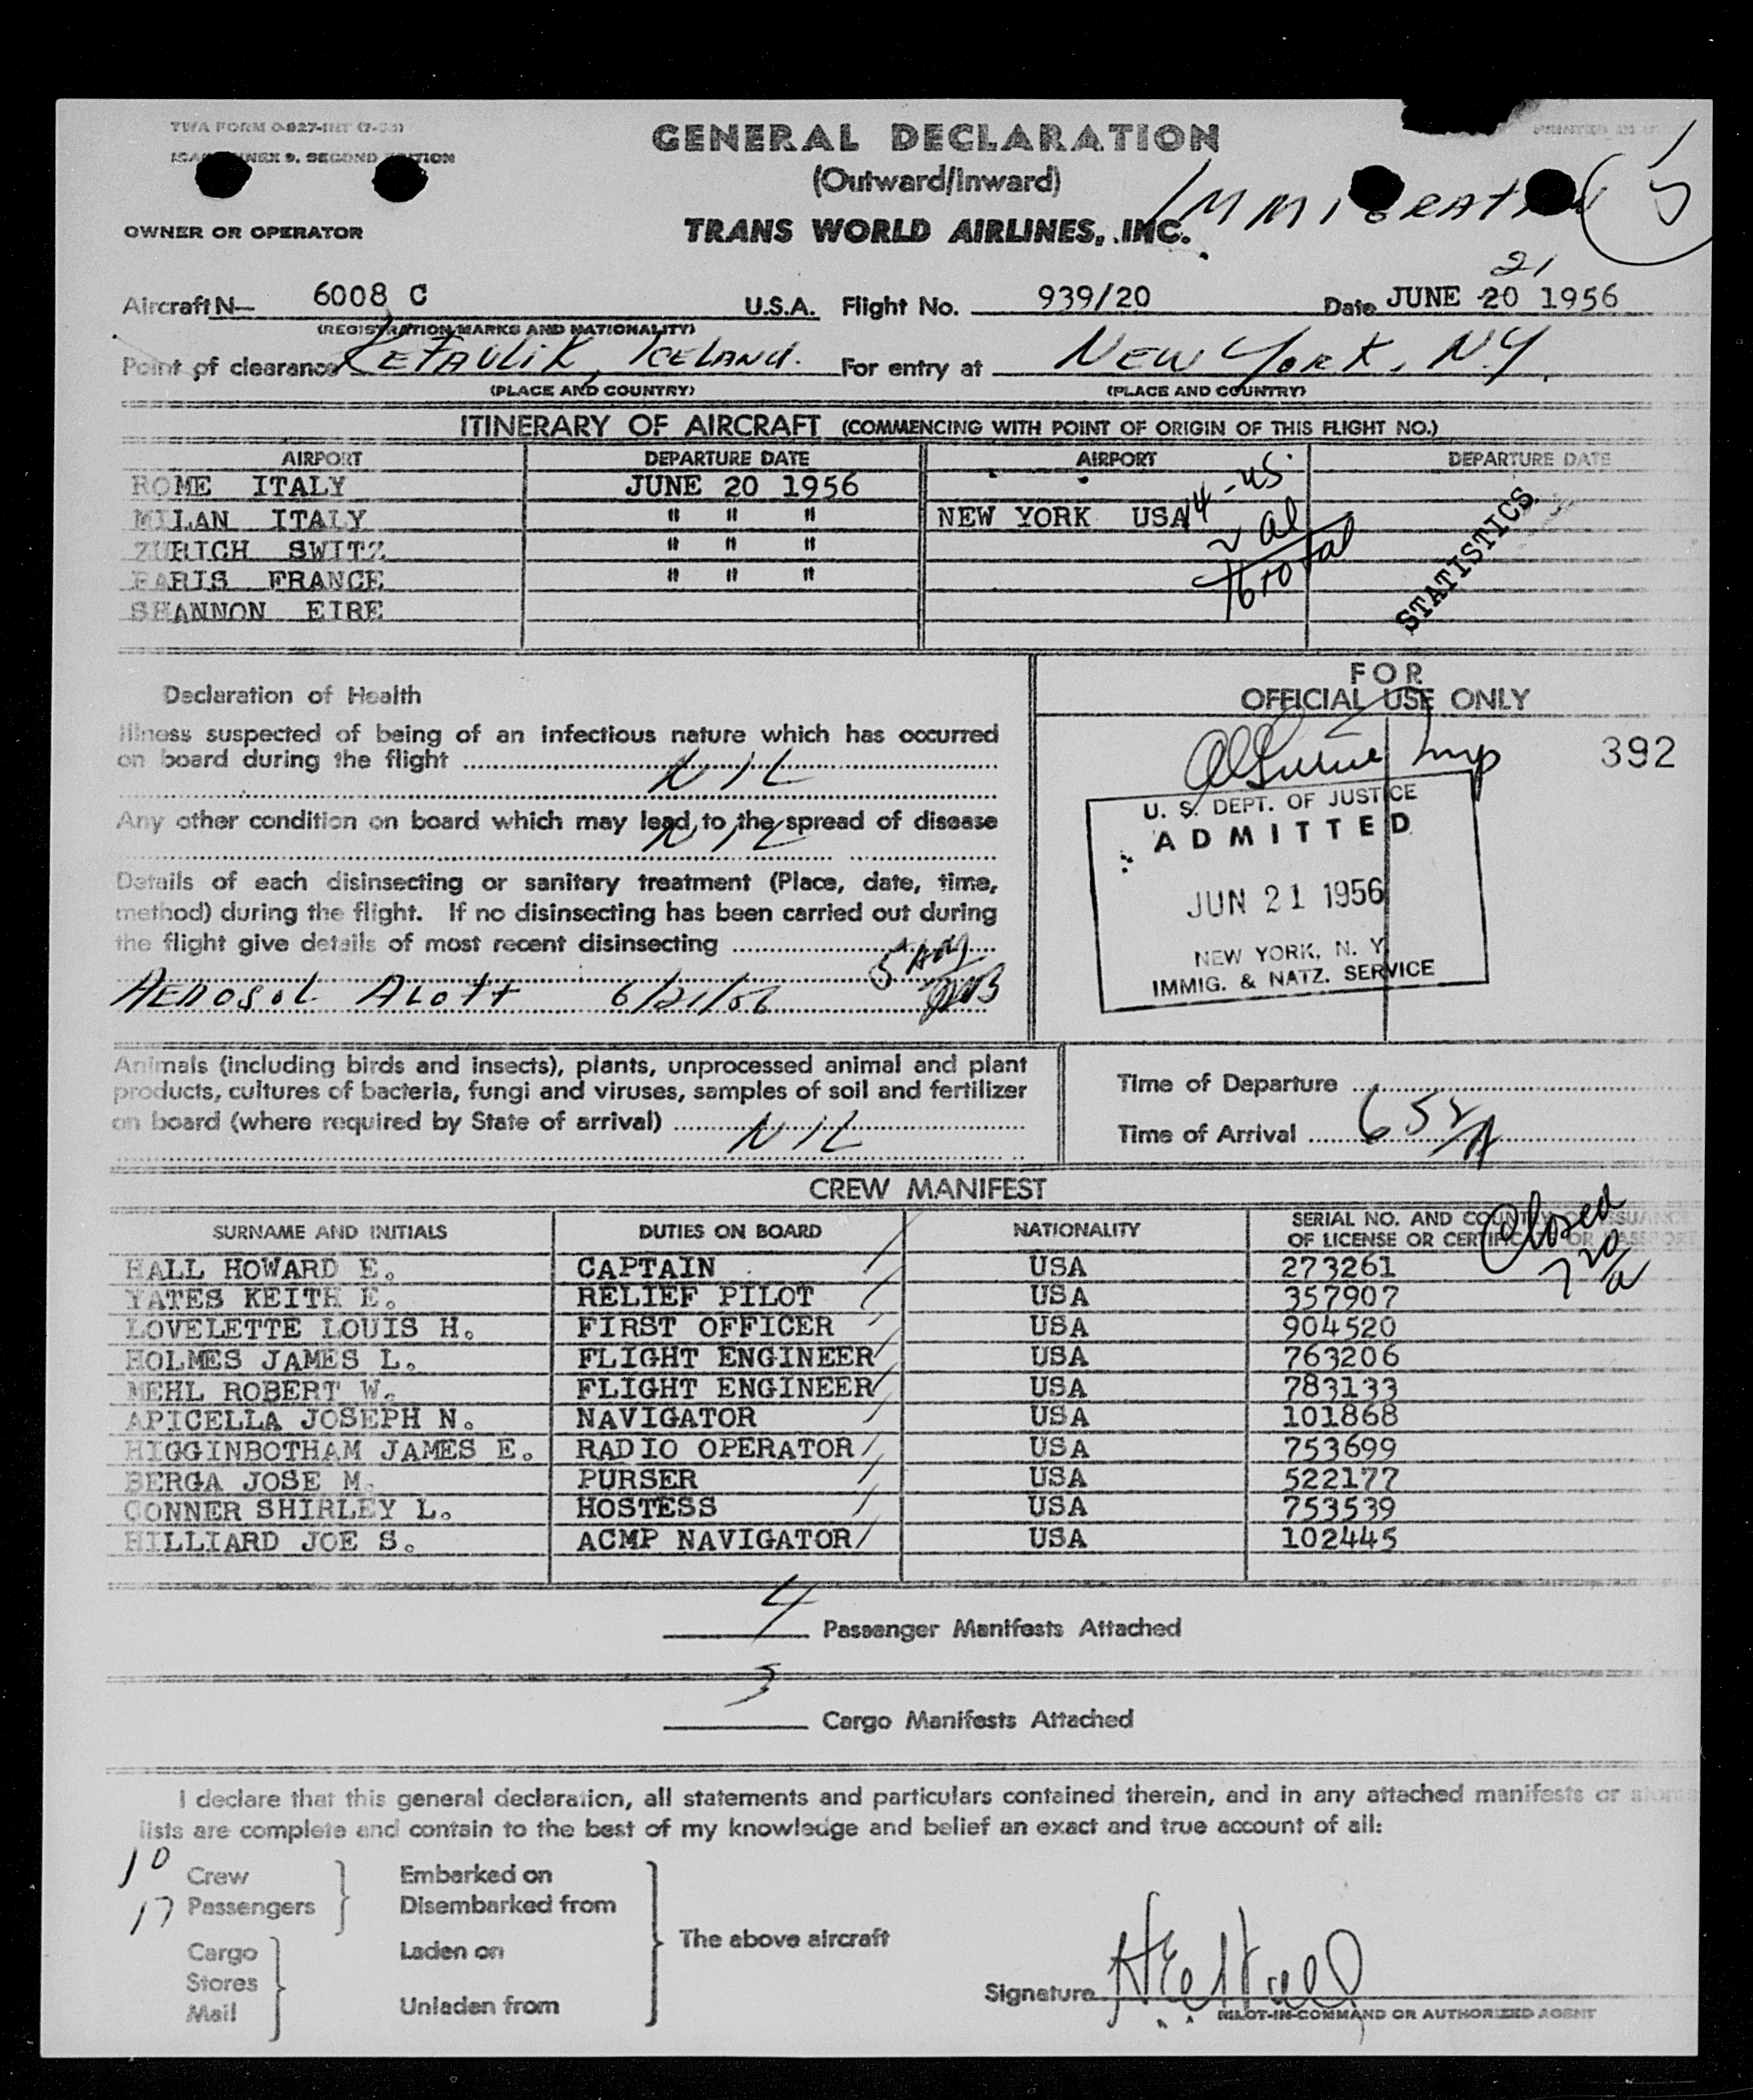 TWA FORM O-927-INT
GENERAL DECLARATION
(Outward/Inward)
TRANS WORLD AIRLINES, INC.
IMMIGRATION
OWNER OR OPERATOR
21
Aircraft N— 6008 C U.S.A. Flight No. 939/20 Date JUNE 20 1956
(REGISTRATION MARKS AND NATIONALITY)
Point of clearance KEFAULIK, ICELAND. For entry at NEW YORK, N.Y.
(PLACE AND COUNTRY) (PLACE AND COUNTRY)
ITINERARY OF AIRCRAFT (COMMENCING WITH POINT OF ORIGIN OF THIS FLIGHT NO.)
AIRPORT DEPARTURE DATE AIRPORT DEPARTURE DATE
ROME ITALY JUNE 20 1956
MILAN ITALY " " " NEW YORK USA
ZURICH SWITZ " " "
PARIS FRANCE " " "
SHANNON EIRE
14 - US.
2 al
16 total
STATISTICS
Declaration of Health
Illness suspected of being of an infectious nature which has occurred
on board during the flight NIL
Any other condition on board which may lead to the spread of disease
NIL
Details of each disinsecting or sanitary treatment (Place, date, time,
method) during the flight. If no disinsecting has been carried out during
the flight give details of most recent disinsecting
AEROSOL ALOTT 6/21/56
FOR
OFFICIAL USE ONLY
392
U. S. DEPT. OF JUSTICE
ADMITTED
JUN 21 1956
NEW YORK, N. Y.
IMMIG. & NATZ. SERVICE
Animals (including birds and insects), plants, unprocessed animal and plant
products, cultures of bacteria, fungi and viruses, samples of soil and fertilizer
on board (where required by State of arrival) NIL
Time of Departure
Time of Arrival 652/A
CREW MANIFEST
SURNAME AND INITIALS DUTIES ON BOARD NATIONALITY SERIAL NO. AND COUNTRY OF ISSUANCE
OF LICENSE OR CERTIFICATE OR PASSPORT
Closed
720/a
HALL HOWARD E. CAPTAIN USA 273261
YATES KEITH E. RELIEF PILOT USA 357907
LOVELETTE LOUIS H. FIRST OFFICER USA 904520
HOLMES JAMES L. FLIGHT ENGINEER USA 763206
MEHL ROBERT W. FLIGHT ENGINEER USA 783133
APICELLA JOSEPH N. NAVIGATOR USA 101868
HIGGINBOTHAM JAMES E. RADIO OPERATOR USA 753699
BERGA JOSE M. PURSER USA 522177
CONNER SHIRLEY L. HOSTESS USA 753539
HILLIARD JOE S. ACMP NAVIGATOR USA 102445
4 Passenger Manifests Attached
3 Cargo Manifests Attached
I declare that this general declaration, all statements and particulars contained therein, and in any attached manifests or stores
lists are complete and contain to the best of my knowledge and belief an exact and true account of all:
10 Crew Embarked on
17 Passengers Disembarked from
The above aircraft
Cargo Laden on
Stores
Mail Unladen from
Signature HE Hall
PILOT-IN-COMMAND OR AUTHORIZED AGENT